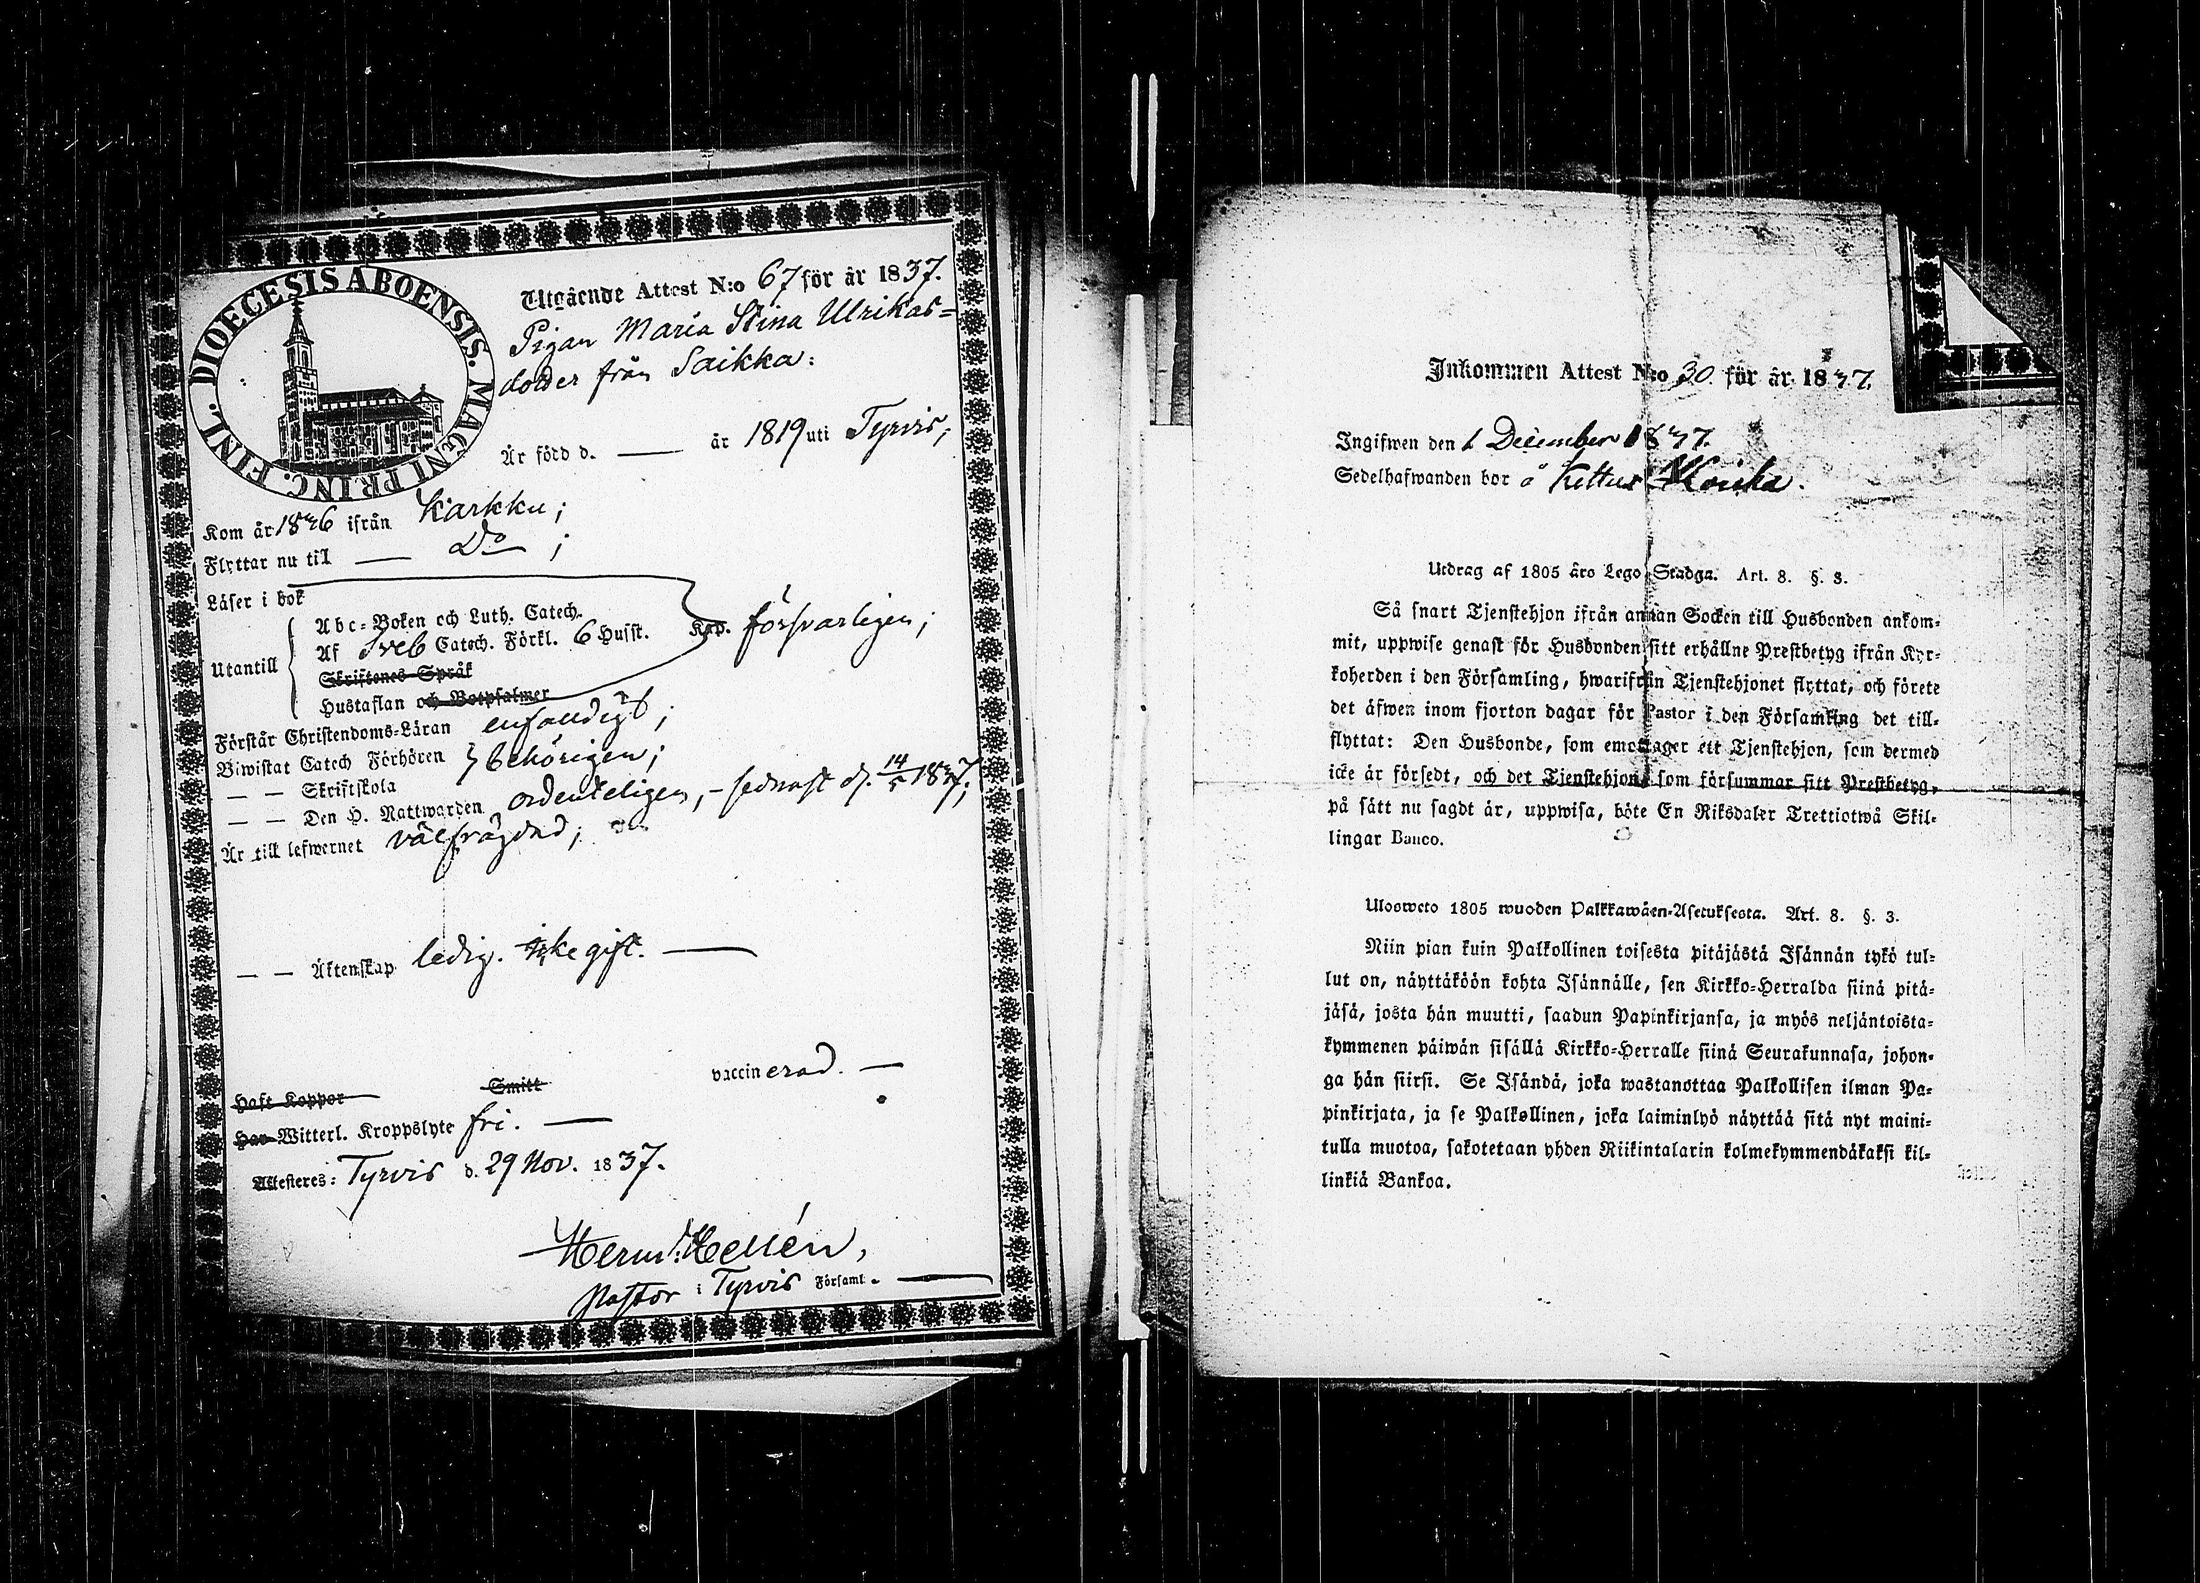 DIOECESIS ABOENSIS. MAGNI PRINC. FINL.
Utgående Attest N:o 67 för år 1837.
Pigan Maria Stina Ulrikas-
dotter från Saikka:
Är född d. — år 1819 uti Tyrvis;
Kom år 1836 ifrån Karkku;
Flyttar nu till — Do ;
Läser i bok
Abc-Boken och Luth. Catech.
Af Sveb Catech. Förkl. 6 Husst. Kap. försvarligen;
Utantill
Skriftenes Språk
Hustaflan och Botpsalmer
Förstår Christendoms-Läran enfaldigt;
Biwistat Catech Förhören } behörigen;
— — Skriftskola
— — Den H. Nattwarden ordenteligen, - sednast d. 1837;
Är till lefwernet välfrägdad;
— — Äktenskap ledig. icke gift. —
Haft Koppor Smitt vaccinerad. —
Har Witterl. Kroppslyte fri. —
Attesteres: Tyrvis d. 29 Nov. 1837.
Herm. Hellén,
Pastor i Tyrvis Församl. —
Inkommen Attest N:o 30. för år 1837.
Ingifwen den 1 December 1837.
Sedelhafwanden bor å
Utdrag af 1805 års Lego-Stadga. Art. 8. §. 3.
Så snart Tjenstehjon ifrån annan Socken till Husbonden ankom-
mit, uppwise genast för Husbonden sitt erhållne Prestbetyg ifrån Kyr-
koherden i den Församling, hwarifrån Tjenstehjonet flyttat, och förete
det äfwen inom fjorton dagar för Pastor i den Församling det till-
flyttat: Den Husbonde, som emottager ett Tjenstehjon, som dermed
icke är försedt, och det Tjenstehjon, som försummar sitt Prestbetyg,
på sätt nu sagdt är, uppwisa, böte En Riksdaler Trettiotwå Skil-
lingar Banco.
Ulosweto 1805 wuoden Palkkawäen-Asetuksesta. Art. 8. §. 3.
Niin pian kuin Palkollinen toisesta pitäjästä Isännän tykö tul-
lut on, näyttäköön kohta Isännälle, sen Kirkko-Herralda siinä pitä-
jäsä, josta hän muutti, saadun Papinkirjansa, ja myös neljäntoista-
kymmenen päiwän sisällä Kirkko-Herralle siinä Seurakunnasa, johon-
ga hän siirsi. Se Isändä, joka wastanottaa Palkollisen ilman Pa-
pinkirjata, ja se Palkollinen, joka laiminlyö näyttää sitä nyt maini-
tulla muotoa, sakotetaan yhden Riikintalarin kolmekymmendäkaksi kil-
linkiä Bankoa.